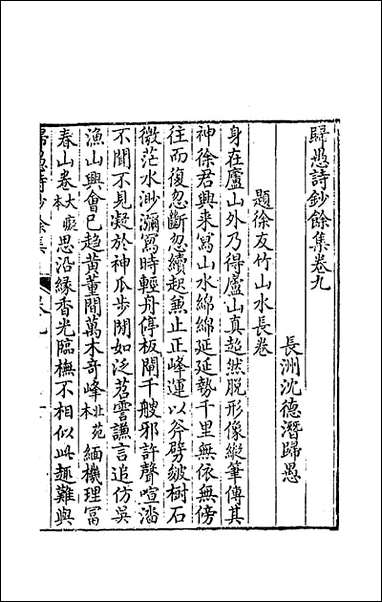 歸愚詩鈔餘集卷九
長洲沈德潛歸愚
題徐友竹山水長卷
身在廬山外乃得廬山真超然脫形像縱筆傳其
神徐君興来寫山水綿綿延延勢千里無依無傍
往而復忽斷忽續起兼止正峰運以斧劈皴樹石
微茫水渺瀰寫時輕舟停板閘千艘邪許聲喧
不聞不見凝於神瓜步如泛苕霅謙言追仿吳
漁山興會已趋黄董間萬木奇峰北苑本緬機理冨
春山卷大癡本思沿緣香光臨橅不相似此趣難與